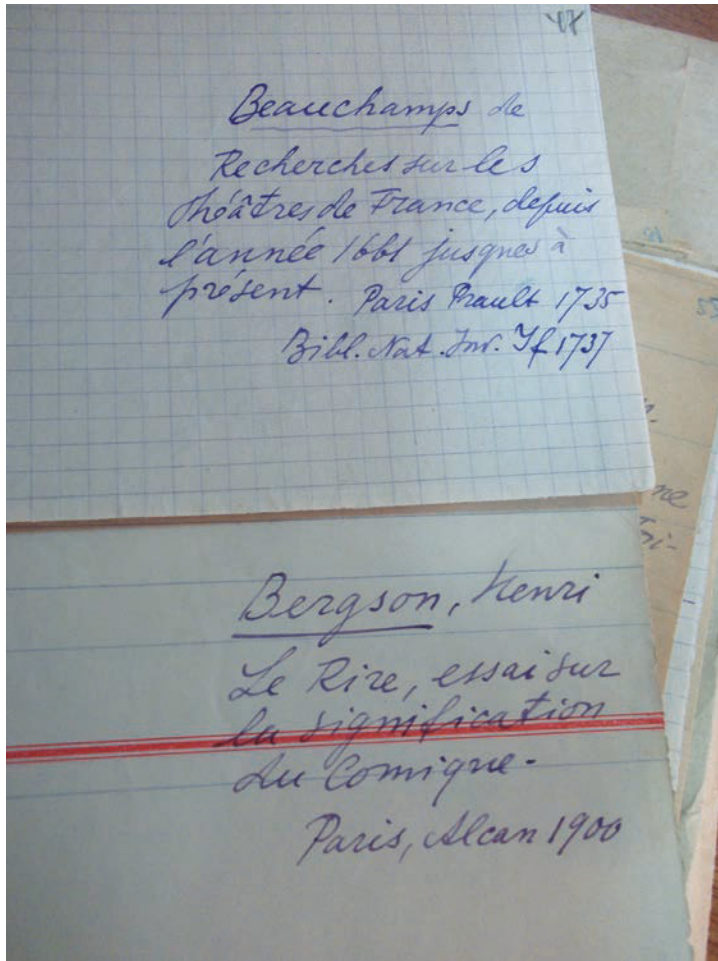 47
Beauchamps de
Recherches sur les
théâtres de France, depuis
l'année 1661 jusques à
présent. Paris Prault 1735
Bibl. Nat. Inv. Yf 1737
Bergson, Henri
Le Rire, essai sur
la signification
du Comique.
Paris, Alcan 1900